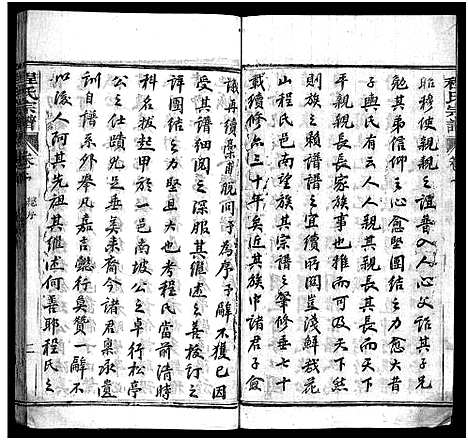 程氏宗譜
昭穆使親親之誼普入人心父詔其子兄
勉其弟信仰之心愈堅團結之力愈大昔
子輿氏有云人人親其親長其長而天下
平親親長長家族事也推而可及天下然
則族之於譜之宜續所關豈淺鮮哉花
山程氏宗譜之肇修垂七十
載續修亦三十年矣近其族中諸君子僉
議再續稾甫脫問予為序予辭不獲已因
受其譜細閱之深服其前人之善於訂之
譯團結之力堅且大也考程氏當前清時
科名拔起甲於一邑南坡公之卓行松亭
公之仕蹟允足垂美來裔今諸君稟承遺
訓自譜系外舉凡嘉言懿行臭贊一辭不
以後人阿其先祖其継述何善耶程氏之
程氏宗譜
序
二